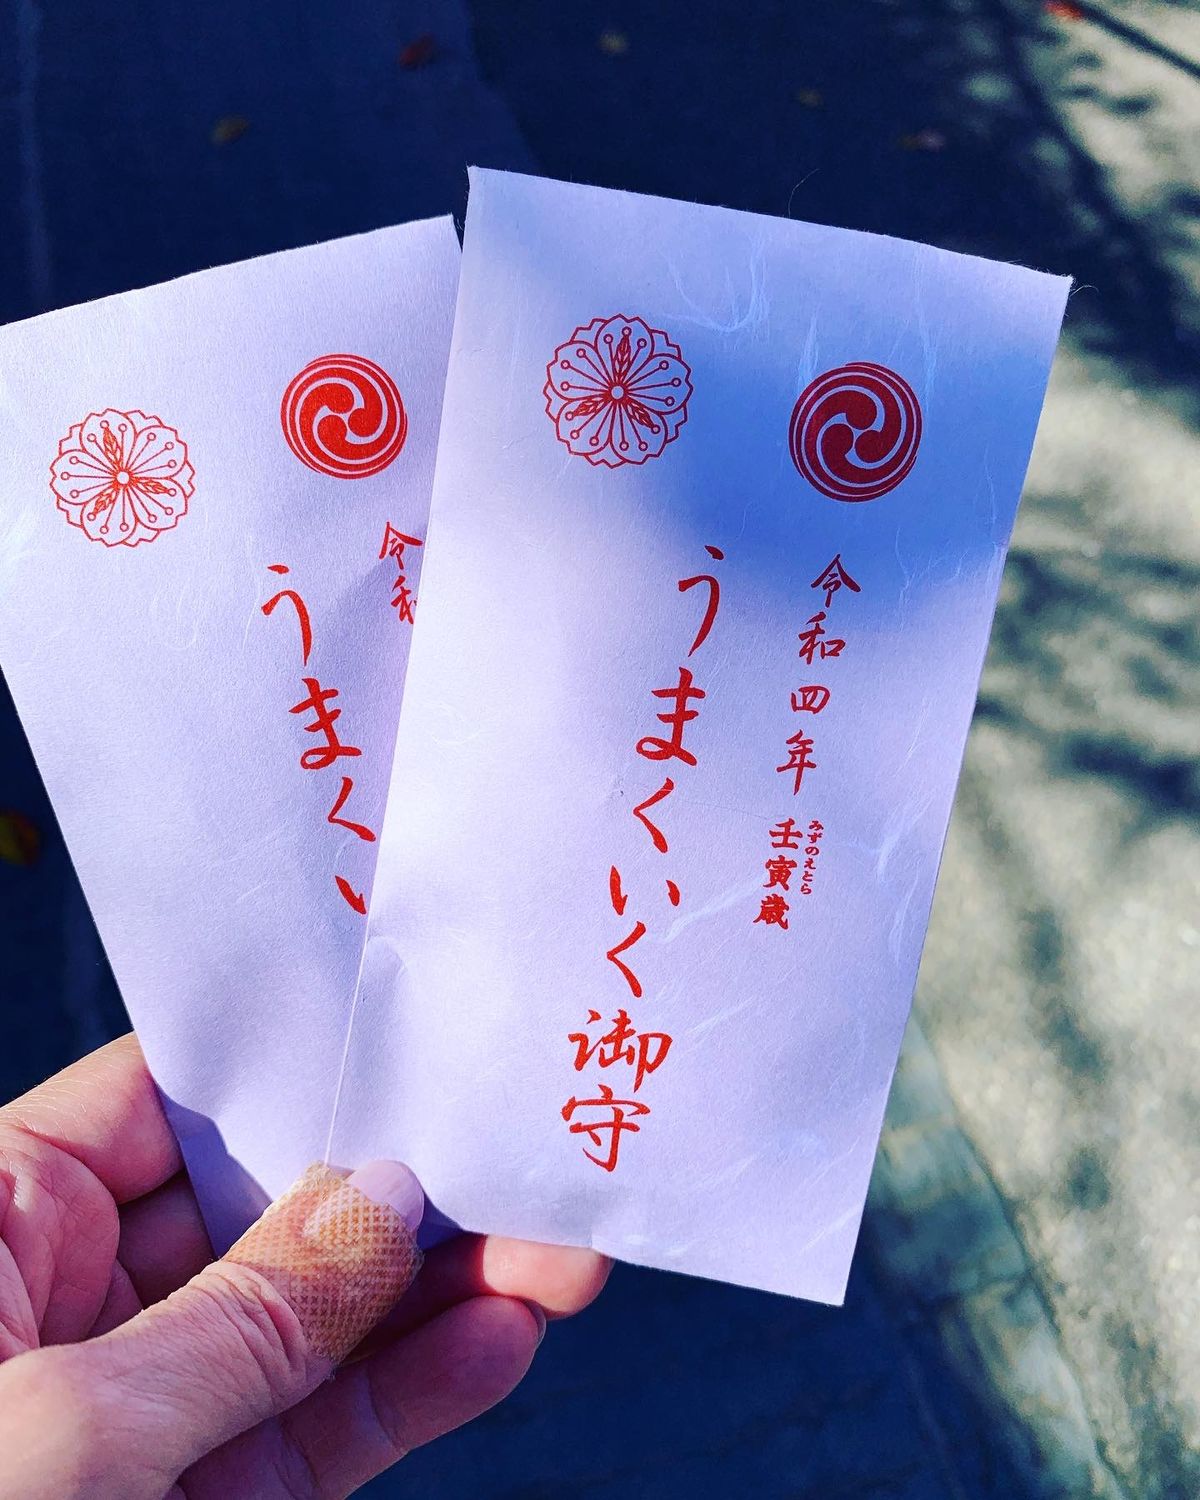 令和四年 壬寅歳
みずのえとら
うまくいく御守
令和
うまくい